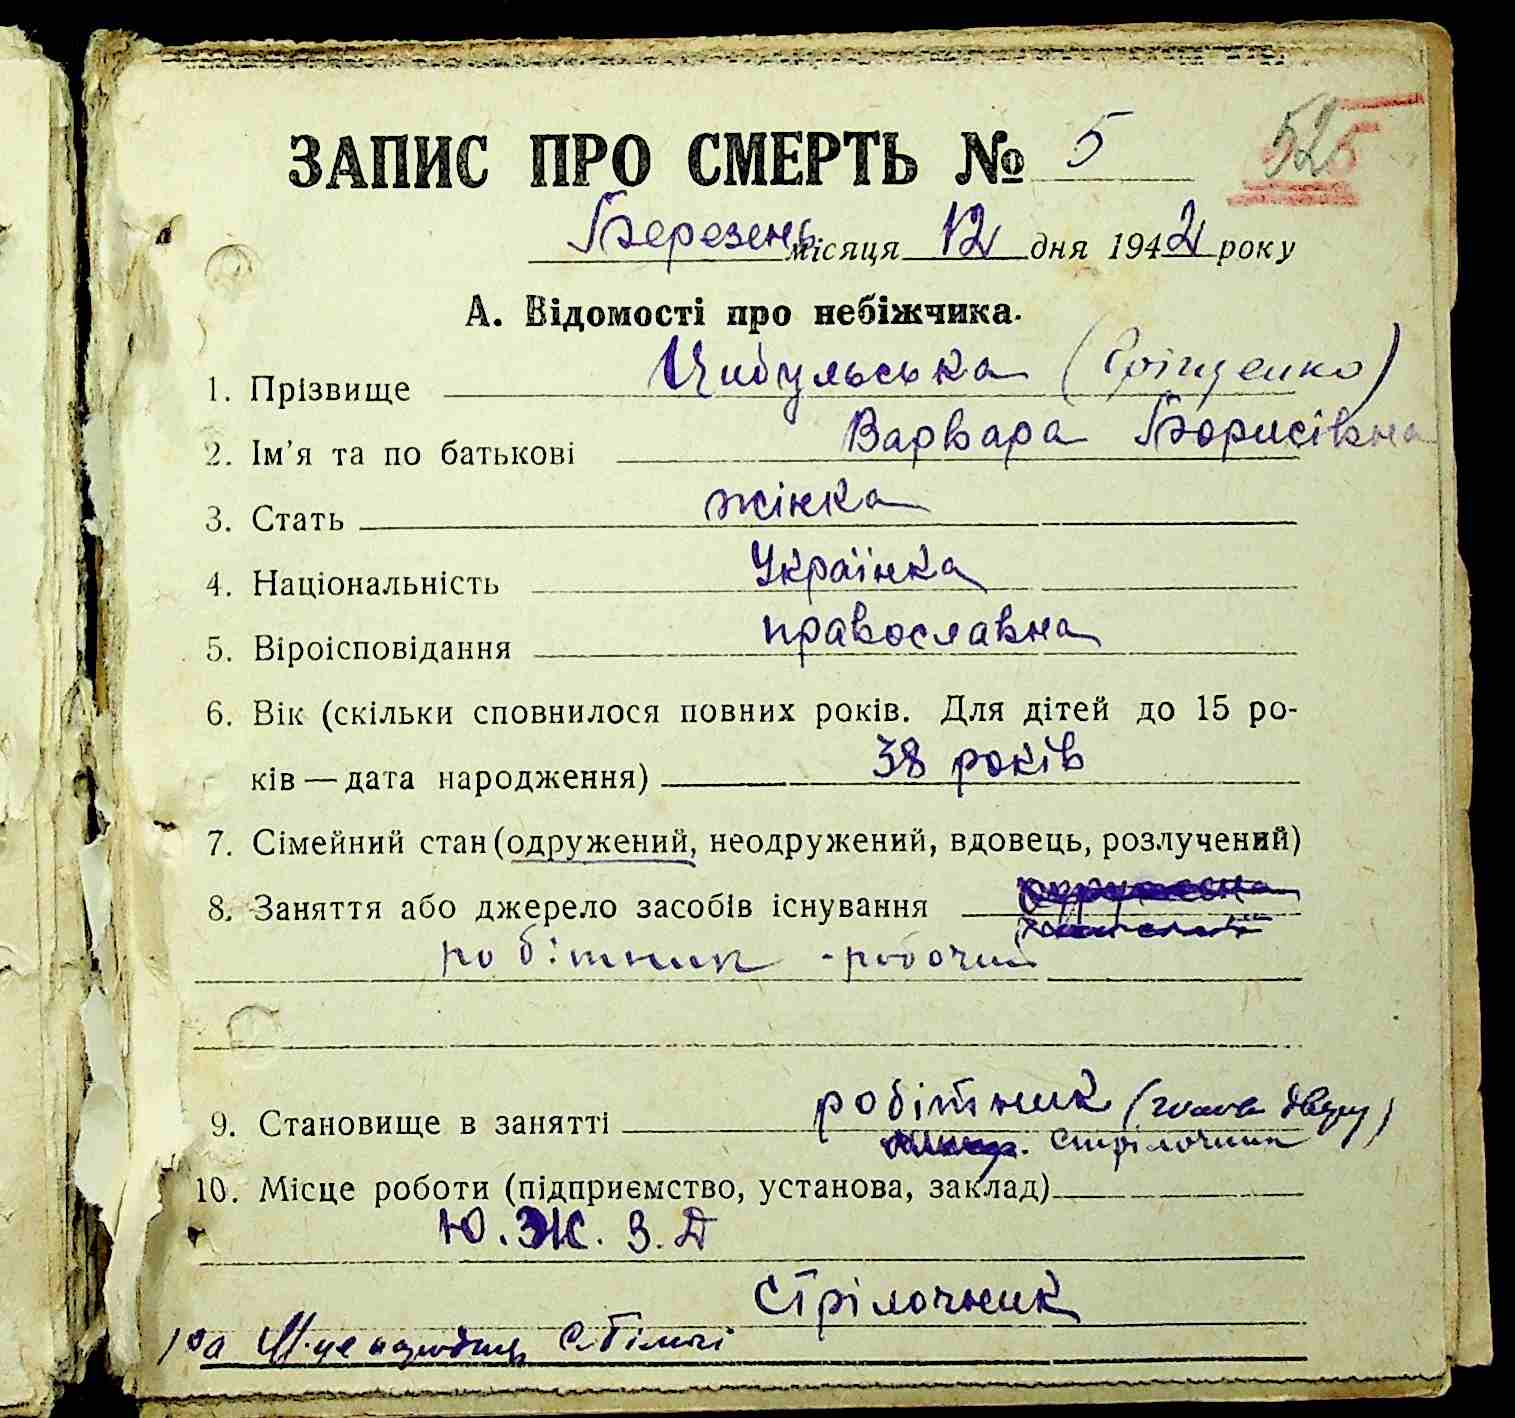 ЗАПИС ПРО СМЕРТЬ № 5
525
Березень місяця 12 дня 1942 року
А. Відомості про небіжчика.
1. Прізвище Цибульська (Гріщенко)
2. Ім'я та по батькові Варвара Борисівна
3. Стать жінка
4. Національність Українка
5. Віроісповідання православна
6. Вік (скільки сповнилося повних років. Для дітей до 15 ро-
ків — дата народження) 38 років
7. Сімейний стан (одружений, неодружений, вдовець, розлучений)
8. Заняття або джерело засобів існування
робітник - робочий
9. Становище в занятті робітник (голова двору)
стрілочник
10. Місце роботи (підприємство, установа, заклад)
Ю. Ж. З. Д
Стрілочник
10а М-це народж